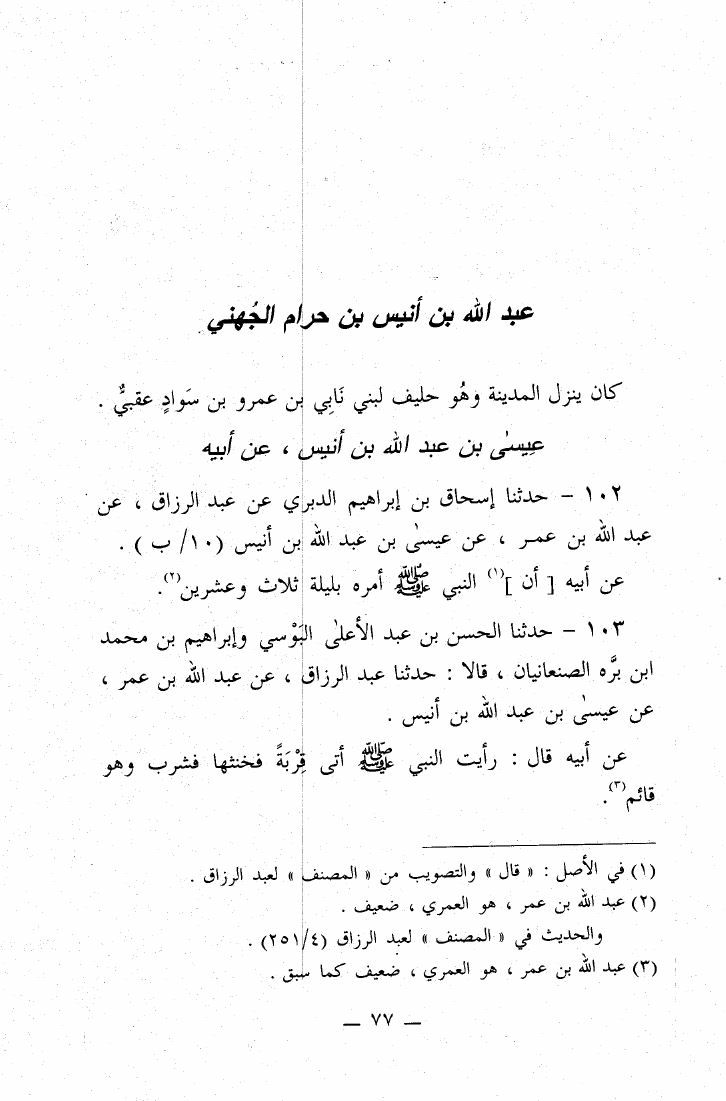 عبد الله بن أنيس بن حرام الجُهني
كان ينزل المدينة وهُو حليف لبني نَابِي بن عمرو بن سَوادٍ عقبيٌّ .
عيسىٰ بن عبد الله بن أنيس ، عن أبيه
١٠٢ – حدثنا إسحاق بن إبراهيم الدبري عن عبد الرزاق ، عن
عبد الله بن عمـر ، عن عيسىٰ بن عبد الله بن أنيس (١٠/ ب ) .
عن أبيه [ أن ](١) النبي ﷺ أمره بليلة ثلاث وعشرين(٢).
١٠٣ – حدثنا الحسن بن عبد الأعلىٰ البَوْسي وإبراهيم بن محمد
ابن برَّه الصنعانيان ، قالا : حدثنا عبد الرزاق ، عن عبد الله بن عمر ،
عن عيسىٰ بن عبد الله بن أنيس .
عن أبيه قال : رأيت النبي ﷺ أتى قِرْبَةً فخنثها فشرب وهو
قائم(٣).
(١) في الأصل : « قال » والتصويب من « المصنف » لعبد الرزاق .
(٢) عبد الله بن عمر ، هو العمري ، ضعيف .
والحديث في « المصنف » لعبد الرزاق (٢٥١/٤) .
(٣) عبد الله بن عمر ، هو العمري ، ضعيف كما سبق .
— ٧٧ —